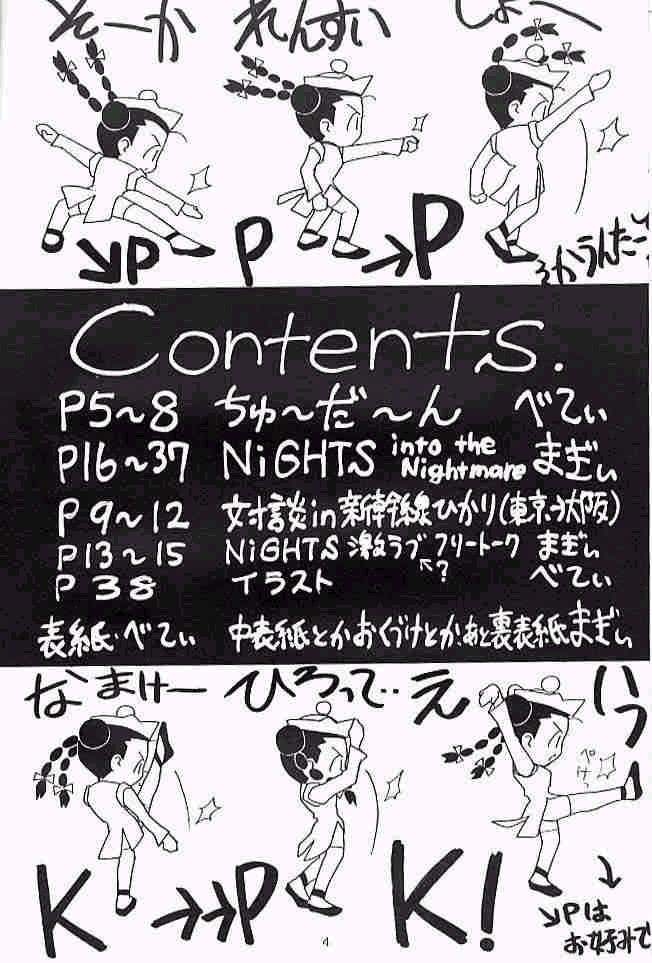 そーか れんすい しょへ
↘P P →P
Contents.
P5～8 ちゅ～だ～ん べてぃ
P16～37 NiGHTS into the Nightmare まぎぃ
P9～12 対談in新幹線ひかり(東京→大阪)
P13～15 NiGHTS 激ラブフリートーク まぎぃ
↖?
P38 イラスト べてぃ
表紙・べてぃ 中表紙とかおくづけとか、あと裏表紙まぎぃ
なまけー ひろって‥ えいっ
ぺけっ
K →→P K!
↘Pは
お好みで
4